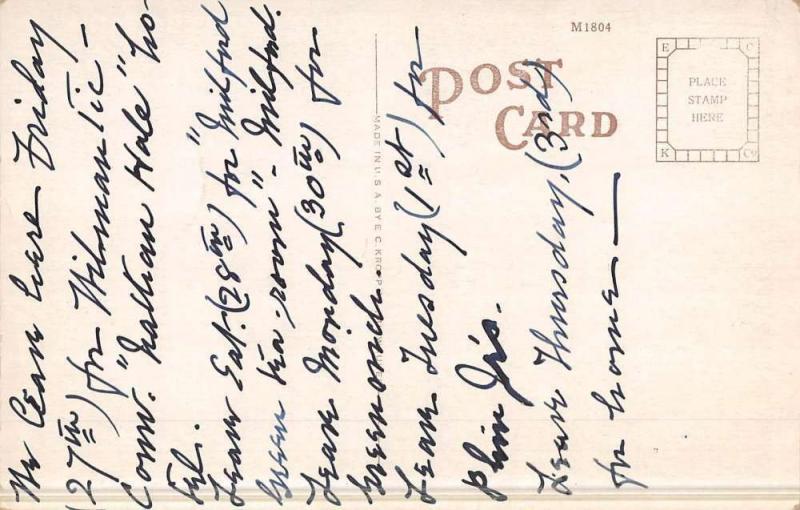 We leave here Friday
(27th) for Wilamantic-
Conn. "Nathan Hale" ho-
tel.
Leave Sat. (28th) for "Milford
Green tea-room"- Milford.
Leave Monday (30th) for
Greenwich.
Leave Tuesday (1st) for
Leave Thursday, (3rd)
for home —
M1804
POST
CARD
E C
PLACE
STAMP
HERE
K Co
MADE IN U.S.A. BY E.C. KROPP